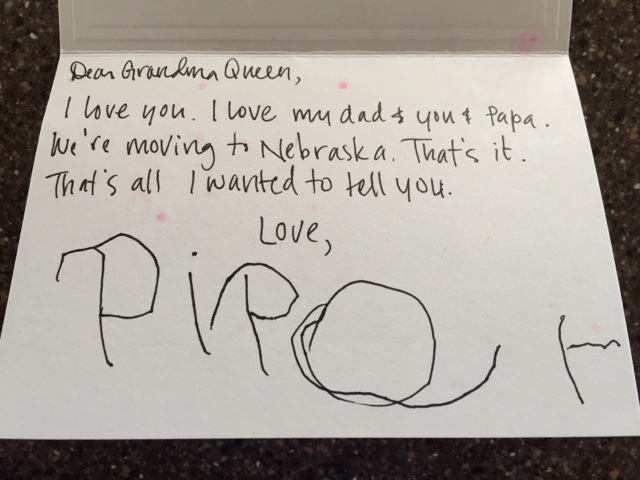 Dear Grandma Queen,
I love you. I love my dad & you & Papa.
We're moving to Nebraska. That's it.
That's all I wanted to tell you.
Love,
PiP